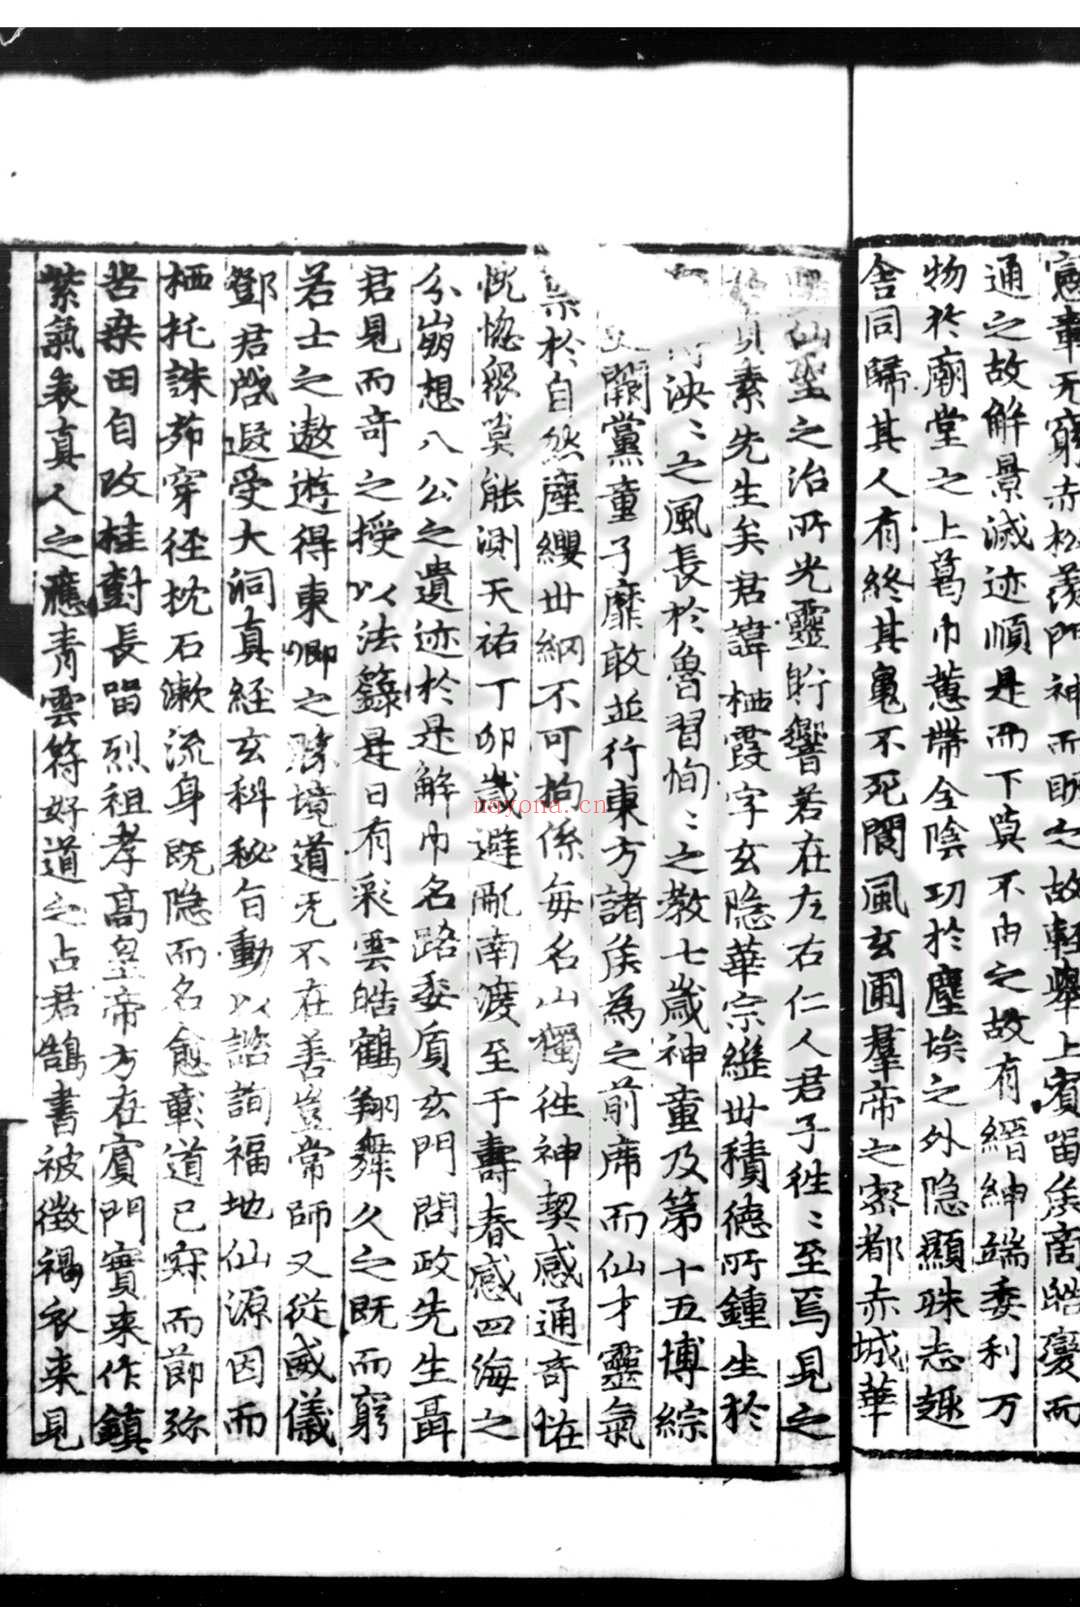 憲章无窮赤松羨門神而助之故輕舉上賓留矦商皓變而
通之故解景滅迹順是而下莫不由之故有縉紳端委利万
物於廟堂之上葛巾蕙帶全陰功於塵埃之外隐顯殊志趣
舍同歸其人有終其鬼不死閬風玄圃羣帝之密都赤城華
仙聖之治所光靈肹響若在左右仁人君子徃〻至焉見之
貞素先生矣君諱栖霞字玄隐華宗継丗積德所鍾生於
泱〻之風長於魯習恂〻之教七歲神童及第十五博綜
闕黨童子靡敢並行東方諸矦為之前席而仙才靈氣
稟於自然塵纓丗網不可拘係每名山獨徃神契感通奇怪
恍惚莫能測天祐丁卯歲避乱南渡至于壽春感四海之
分崩想八公之遺迹於是解巾名路委質玄門問政先生聶
君見而竒之授以法籙是日有彩雲皓鶴翔舞久之既而窮
若士之遨遊得東卿之勝境道无不在善豈常師又從威儀
鄧君啟遐受大洞真経玄科秘旨動以諮詢福地仙源因而
栖托誅茆穿徑枕石漱流身既隐而名愈彰道已寂而節弥
苦桒田自改桂對長留烈祖孝高皇帝方在賓門實來作鎮
紫氣表真人之應青雲符好道之占君鵠書被徵褐衣來見
nayona.cn